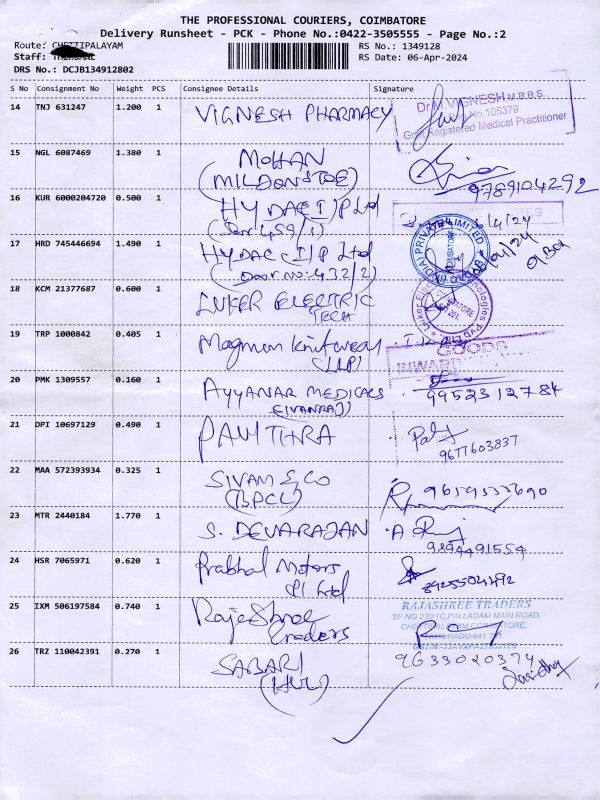 THE PROFESSIONAL COURIERS, COIMBATORE
Delivery Runsheet - PCK - Phone No.:0422-3505555 - Page No.:2
Route: CHETTIPALAYAM
RS No.: 1349128
Staff:
RS Date: 06-Apr-2024
DRS No.: DCJB134912802
S No Consignment No Weight PCS Consignee Details Signature
14 TNJ 631247 1.200 1 VIGNESH PHARMACY
Dr.M.VIGNESH,M.B.B.S.,
No.105379
Govt.Registered Medical Practitioner
15 NGL 6087469 1.380 1 MOHAN
(MILDONSTOE)
9789104292
16 KUR 6000204720 0.500 1 HYDAC I/P Ltd
(Door:459/1)
17 HRD 745446694 1.490 1 HYDAC I/P Ltd
(Door no:432/2)
18 KCM 21377687 0.600 1 LUKER ELECTRIC
TECH
19 TRP 1000842 0.405 1 Magnum Knitwear
(LLP)
GOODS
INWARD
20 PMK 1309557 0.160 1 AYYANAR MEDICALS
9952312784
21 DPI 10697129 0.490 1 PAVITHRA
9677603837
22 MAA 572393934 0.325 1 SIVAM & CO
(BPCL)
23 MTR 2440184 1.770 1 S. DEVARAJAN
9894491554
24 HSR 7065971 0.620 1 Prabhal Motors
P Ltd
25 IXM 506197584 0.740 1 RajeShree
Traders
RAJASHREE TRADERS
SF NO 230/1C,PALLADAM MAIN ROAD,
CHETTIPALAYAM,COIMBATORE,
TAMILNADU-641 201
26 TRZ 110042391 0.270 1 SABARI
(HUL)
9633020374